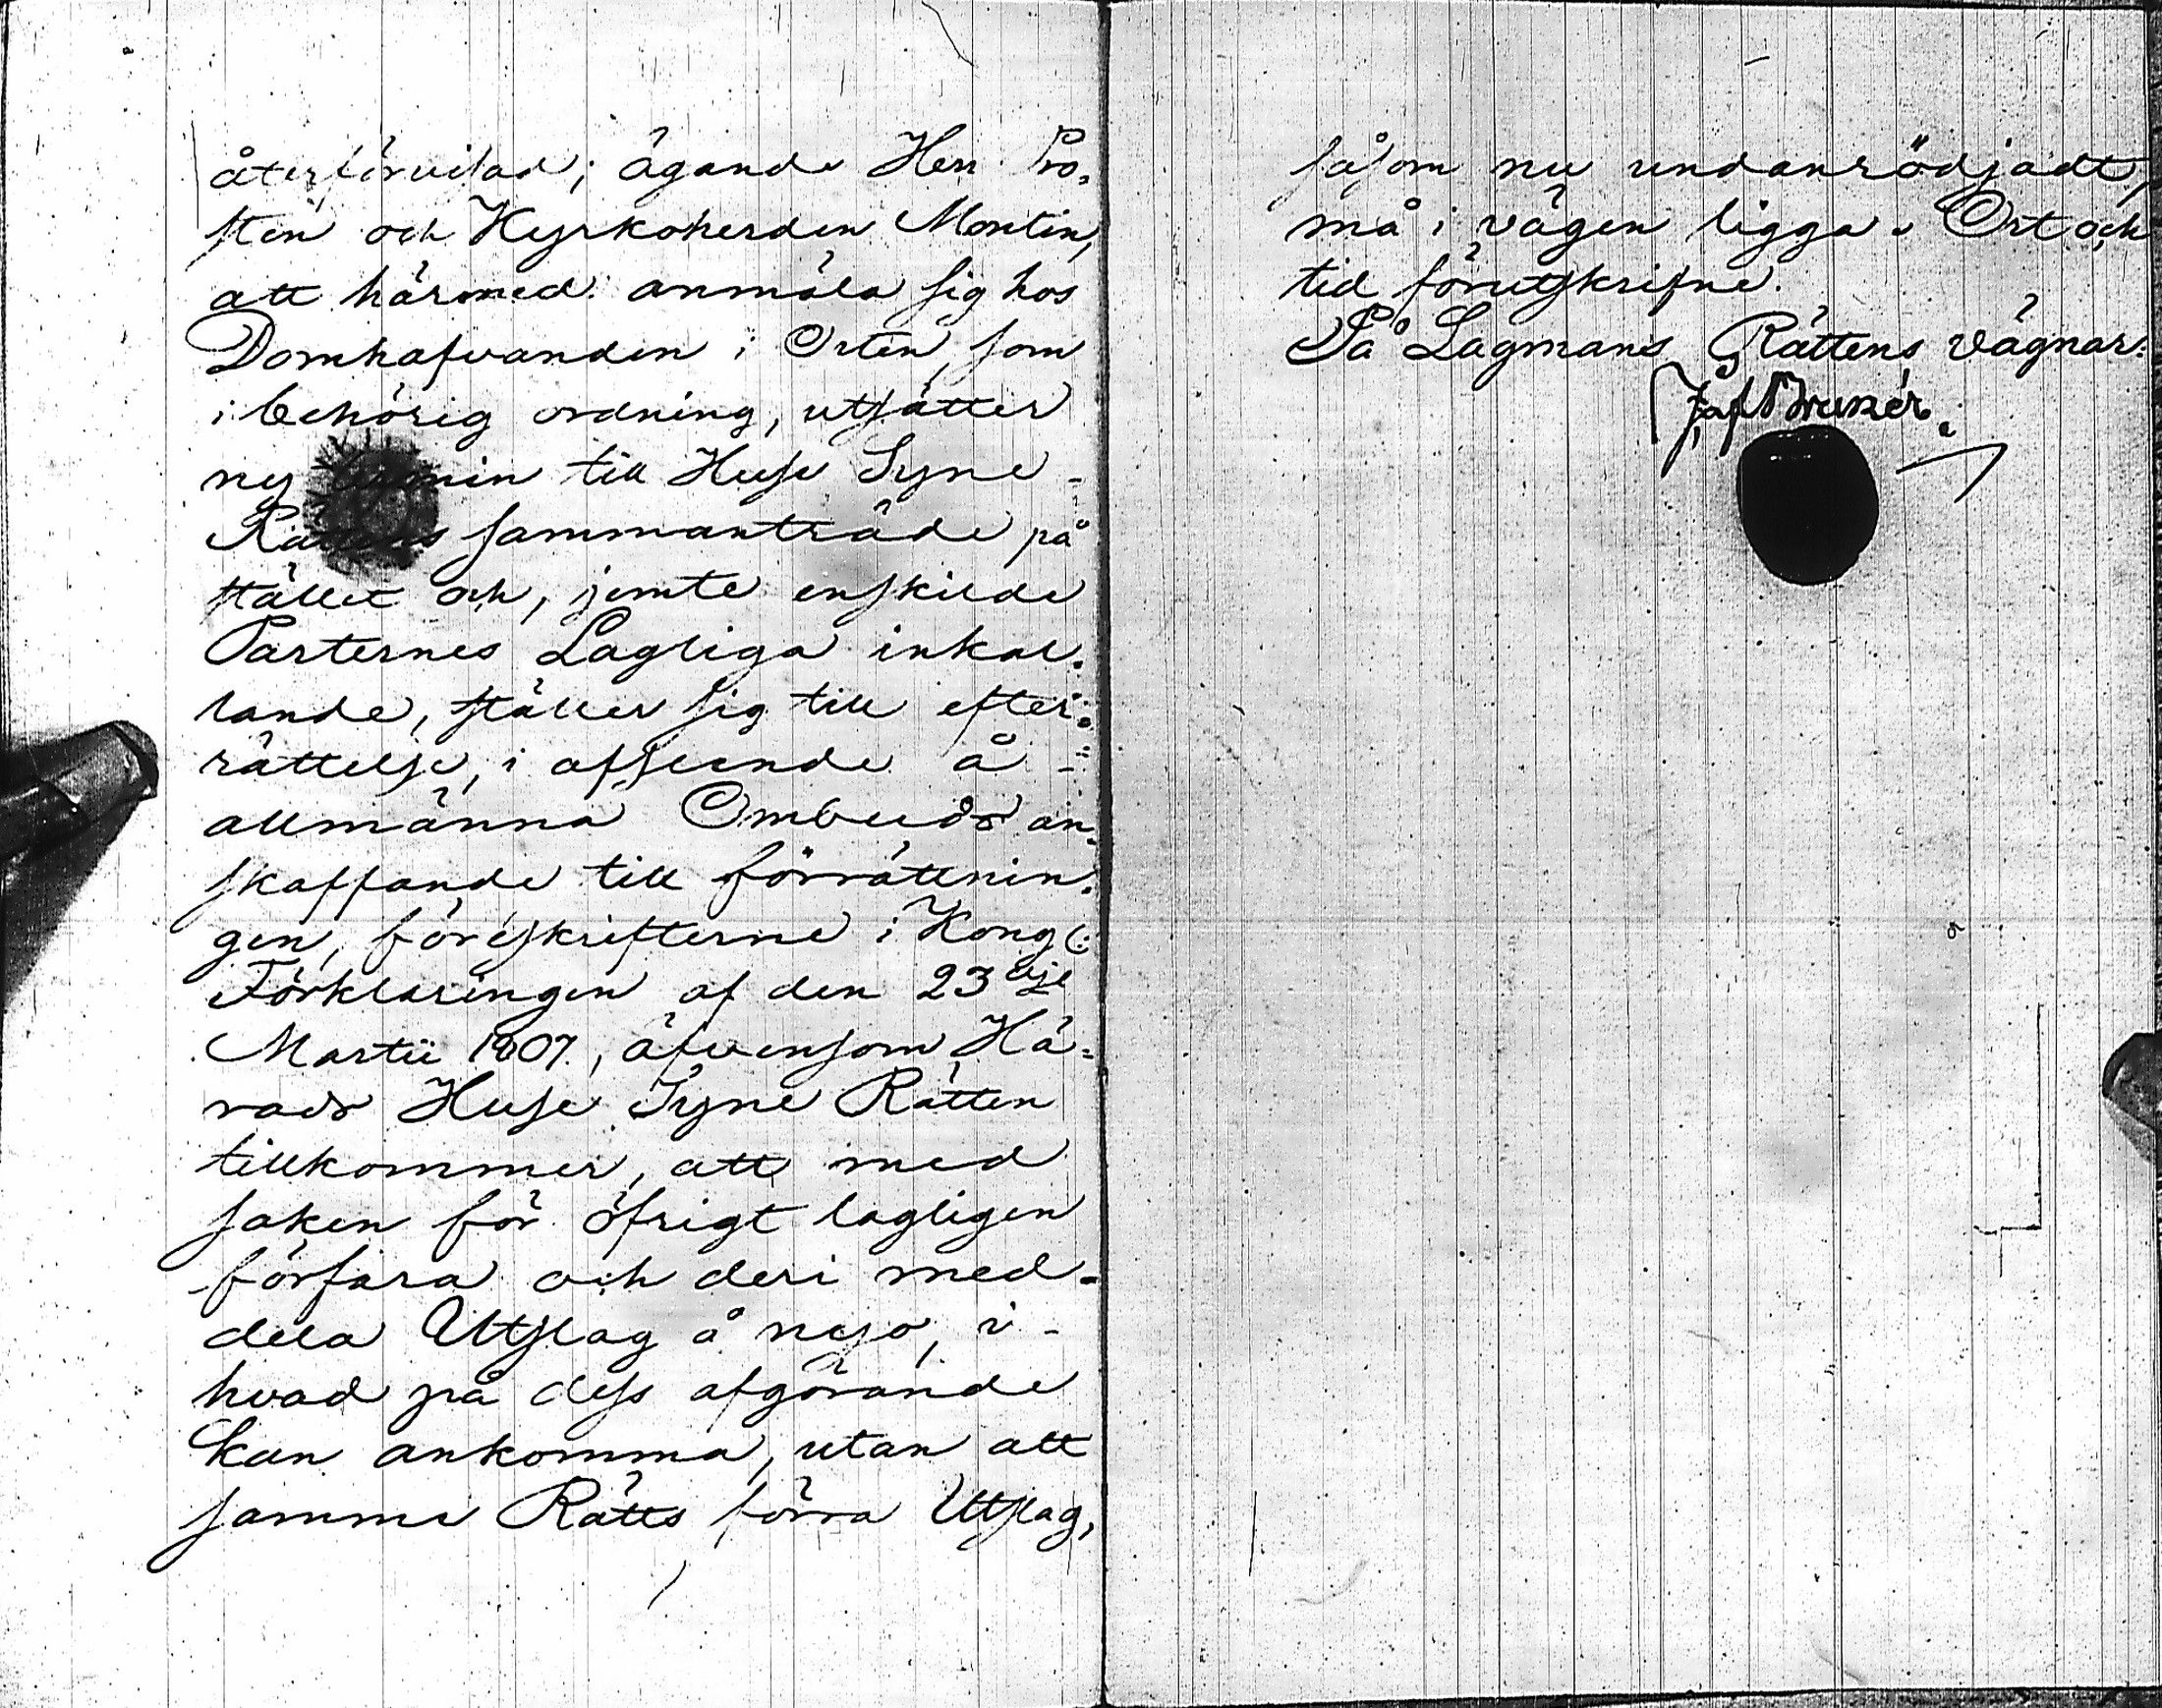 återförvisad; ägande Herr Pro,
sten och Kyrkoherden Montin,
att härmed anmäla sig hos
Domhafvanden i Orten, som
i behörig ordning, utsätter
ny termin till Huse Syne-
Rättens sammanträde på
stället och, jemte enskilde
Parternes Lagliga inkal,
lande, ställer sig till efter,
rättelse, i afseende å
allmänna Ombuds an,
skaffande till förrättnin,
gen, föreskrifterne i Kongl:
Förklaringen af den 23dje
Martii 1807, äfvensom Hä=
rads Huse Syne Rätten
tillkommer, att med
saken för öfrigt lagligen
förfara och deri med-
dela Utslag å nyo, i-
hvad på dess afgörande
kan ankomma, utan att
samme Rätts förra Utslag,
såsom nu undanrödjadt,
må i vägen ligga. Ort och
tid förutskrifne.
På Lagmans Rättens vägnar: